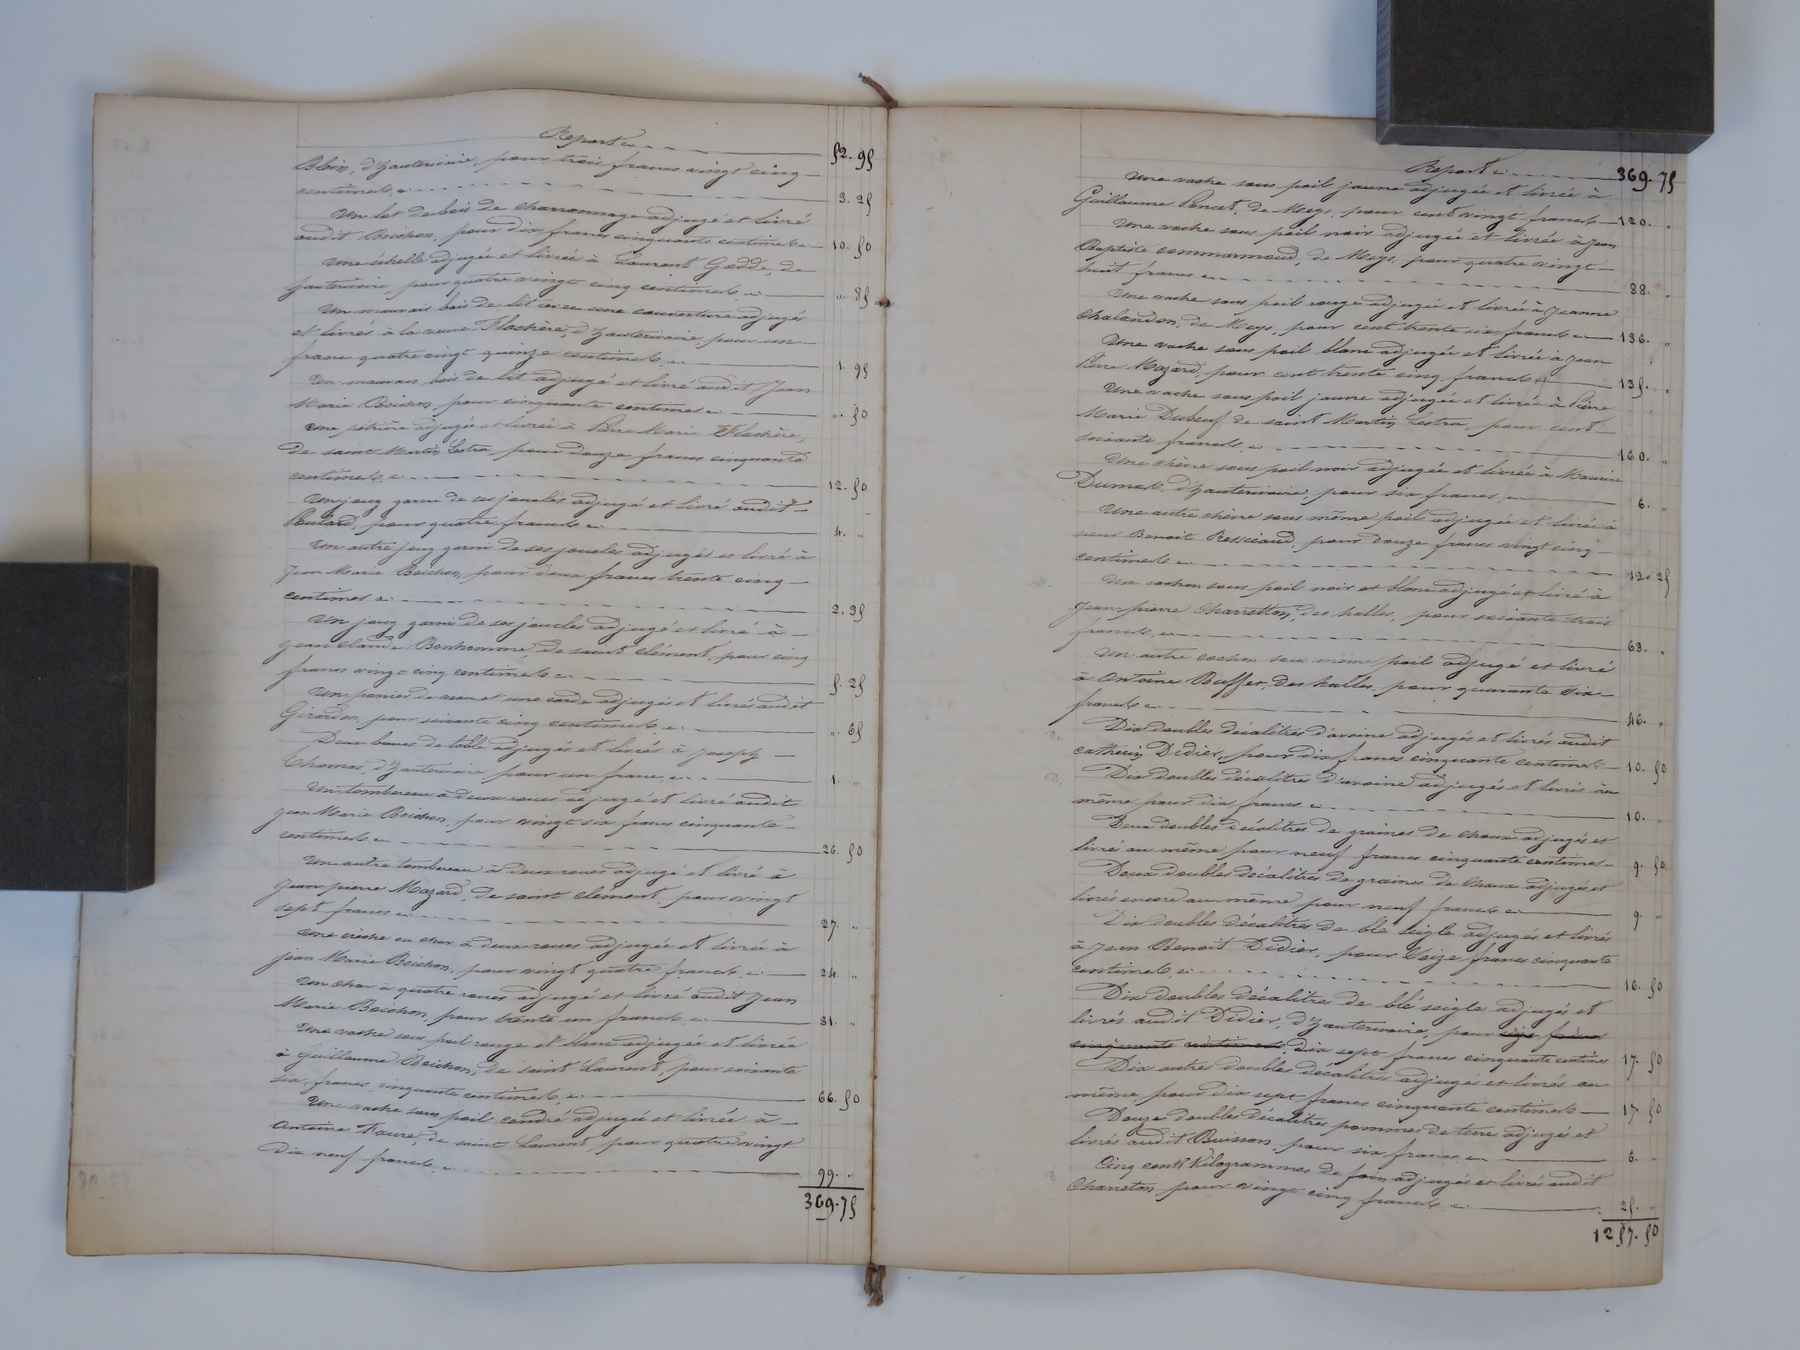 Report 52. 95
Blein, d'hauterivoire, pour trois francs vingt cinq
centimes 3. 25
Un lot de bois de charronnage adjugé et livré
audit Boichon, pour dix francs cinquante centimes 10. 50
Une échelle adjugée et livrée à Laurent Gadde, de
hauterivoire pour quatre vingt cinq centimes ". 85
Un mauvais bois de lit avec une couverture adjugés
et livrés à la veuve Flachère, d'hauterivoire, pour un
franc quatre vingt quinze centimes 1. 95
Un mauvais bois de lit adjugé et livré audit Jean
Marie Boichon, pour cinquante centimes ". 50
Une pétrière adjugée et livrée à Pierre Marie Flachère,
de saint Martin Lestra, pour douze francs cinquante
centimes 12. 50
Un joug garni de ses joucles adjugé et livré audit
Poulard, pour quatre francs 4. "
Un autre joug garni de ses joucles adjugés et livré à
Jean Marie Boichon, pour deux francs trente cinq
centimes 2. 35
Un joug garni de ses joucles adjugé et livré à
Jean Claude Bonhomme, de saint Clément, pour cinq
francs vingt cinq centimes 5. 25
Un panier de et une corde adjugés et livrés audit
Girardon, pour soixante cinq centimes ". 65
Deux bancs de table adjugés et livrés à Joseph
Thomas, d'hauterivoire pour un franc 1. "
Un tombereau à deux roues adjugé et livré audit
Jean Marie Boichon, pour vingt six francs cinquante
centimes 26. 50
Un autre tombereau à deux roues adjugé et livré à
Jean pierre Mazard, de saint Clément, pour vingt
sept francs 27. "
Une crèche ou char à deux roues adjugée et livrée à
Jean Marie Boichon, pour vingt quatre francs 24. "
Un char à quatre roues adjugé et livré audit Jean
Marie Boichon, pour trente un francs 31. "
Une vache sous poil rouge et blanc adjugée et livrée
à Guillaume Boichon, de saint Laurent, pour soixante
six francs cinquante centimes 66. 50
Une vache sous poil cendré adjugée et livrée à
Antoine Faure, de saint Laurent, pour quatre vingt
dix neuf francs 99. "
369. 75
Report 369. 75
Une vache sous poil jaune adjugée et livrée à
Guillaume Poncet, de Meys, pour cent vingt francs 120. "
Une vache sous poil noir adjugée et livrée à Jean
Baptiste Commarmond, de Meys, pour quatre vingt
huit francs 88. "
Une vache sous poil rouge adjugée et livrée à Jeanne
Chalandon, de Meys, pour cent trente six francs 136. "
Une vache sous poil blanc adjugée et livrée à Jean
Pierre Mazard, pour cent trente cinq francs 135. "
Une vache sous poil jaune adjugée et livrée à Pierre
Marie Dubeuf, de saint Martin Lestra, pour cent
soixante francs 160. "
Une chèvre sous poil noir adjugée et livrée à Maurice
Dumas, d'hauterivoire, pour six francs 6. "
Une autre chèvre sous même poil adjugée et livrée à
sieur Benoit Ressicaud, pour douze francs vingt cinq
centimes 12. 25
Un cochon sous poil noir et blanc adjugé et livré à
Jean pierre Charretton, des halles, pour soixante trois
francs 63. "
Un autre cochon sous même poil adjugé et livré
à Antoine Buffet, des halles, pour quarante six
francs 46. "
Dix doubles décalitres d'avoine adjugés et livrés audit
Catherin Didier, pour dix francs cinquante centimes 10. 50
Dix doubles décalitres d'avoine adjugés et livrés au
même pour dix francs 10. "
Deux doubles décalitres de graines de choux adjugés et
livré au même pour neuf francs cinquante centimes 9. 50
Deux doubles décalitres de graines de choux adjugés et
livrés encore au même pour neuf francs 9. "
Dix doubles décalitres de blé seigle adjugés et livrés
à Jean Benoit Didier, pour seize francs cinquante
centimes 16. 50
Dix doubles décalitres de blé seigle adjugés et
livrés audit Didier, d'hauterivoire, pour seize francs
cinquante centimes, dix sept francs cinquante centimes 17. 50
Dix autres doubles décalitres adjugés et livrés au
même pour dix sept francs cinquante centimes 17. 50
Douze doubles décalitres pommes de terre adjugés et
livrés audit Buisson, pour six francs 6. "
Cinq cents kilogrammes de foin adjugés et livrés audit
Charreton, pour vingt cinq francs 25. "
1257. 50